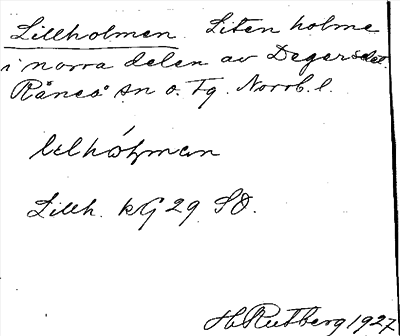 Lillholmen. Liten holme
i norra delen av Degerselet.
Råneå sn o. Tg. Norrb. l.
lɩlhólmɘn
Lillh. kG 29 SO.
H. Rutberg 1927